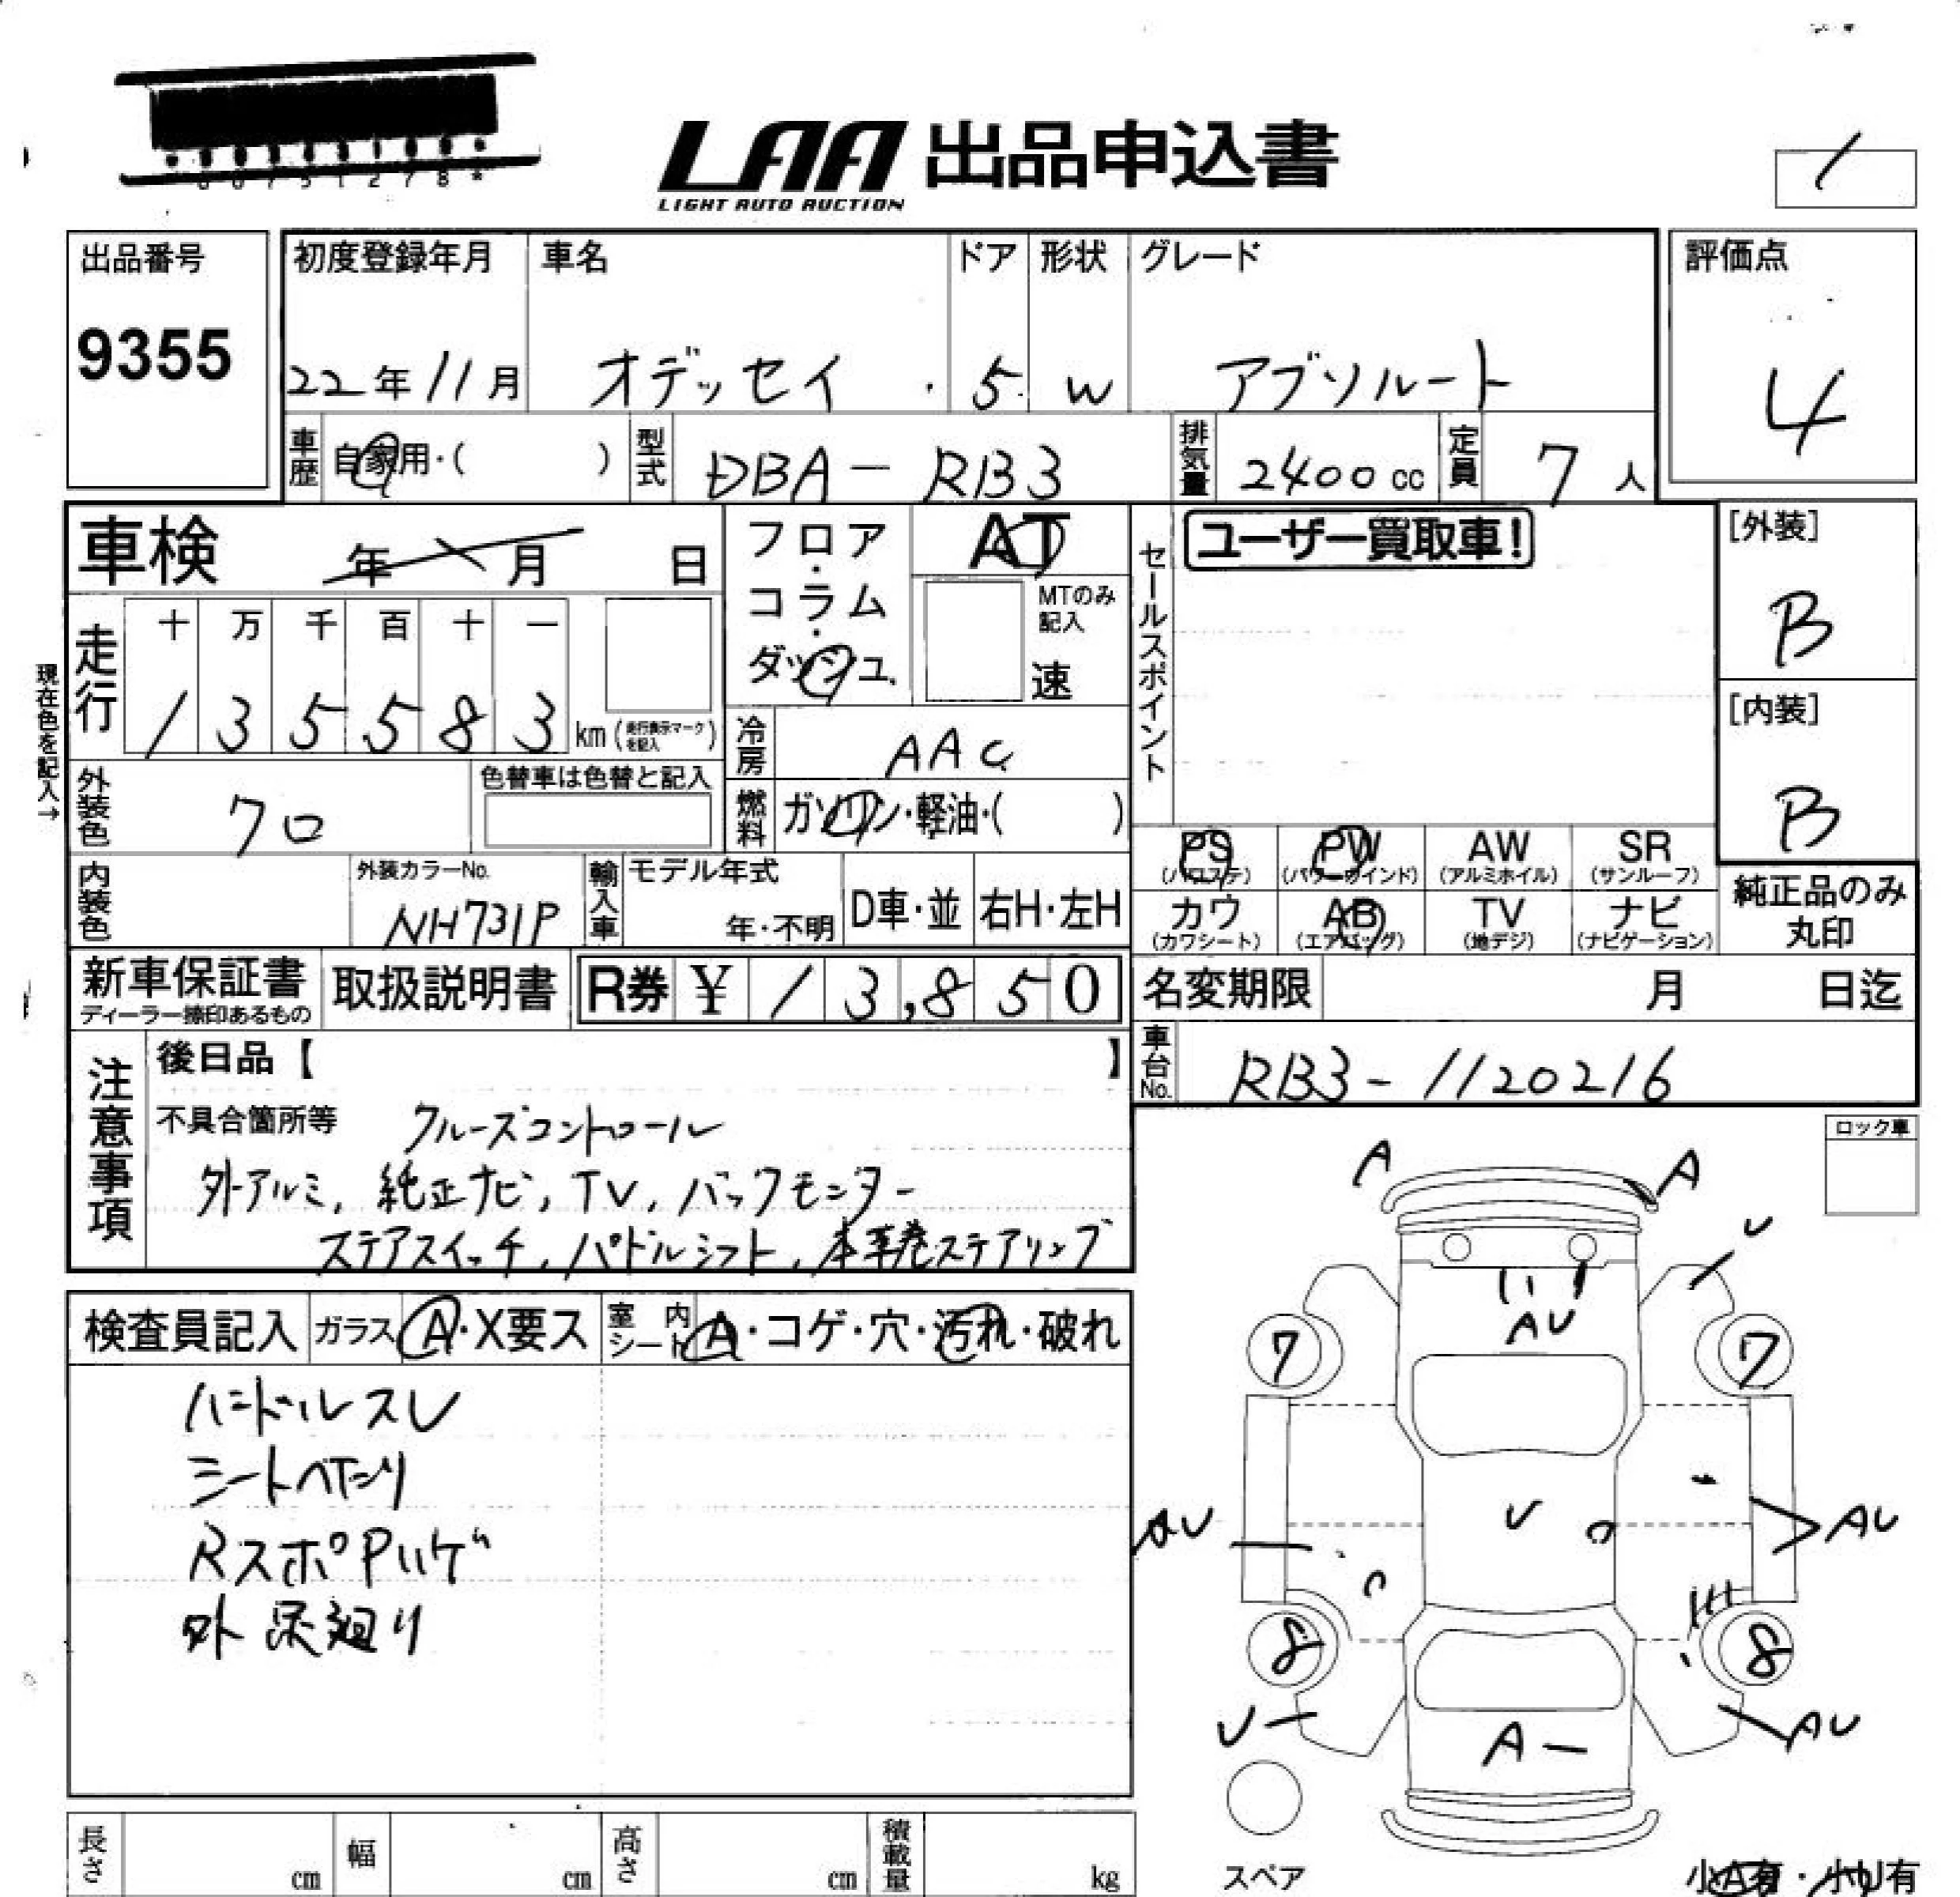 LAA 出品申込書
LIGHT AUTO AUCTION
出品番号
9355
初度登録年月
22年11月
車名
オデッセイ
ドア
5
形状
W
グレード
アブソルート
評価点
4
車歴 自家用・( )
型式 DBA-RB3
排気量 2400cc
定員 7人
車検 年 月 日
フロア・コラム・ダッシュ
AT
MTのみ記入
速
セールスポイント
ユーザー買取車!
[外装]
B
[内装]
B
現在色を記入→
走行
十 万 千 百 十 一
1 3 5 5 8 3 km (走行表示マークを記入)
冷房 AAC
外装色 クロ
色替車は色替と記入
燃料 ガソリン・軽油・( )
PS PW AW SR
(パワステ) (パワーウインド) (アルミホイル) (サンルーフ)
カワ AB TV ナビ
(カワシート) (エアバッグ) (地デジ) (ナビゲーション)
純正品のみ
丸印
内装色
外装カラーNo.
NH731P
輸入車
モデル年式
年・不明
D車・並
右H・左H
新車保証書
ディーラー捺印あるもの
取扱説明書
R券 ¥ 13,850
名変期限 月 日迄
車台No. RB3-1120216
注意事項
後日品【 】
不具合箇所等 クルーズコントロール
外アルミ, 純正ナビ, TV, バックモニター
ステアスイッチ, パドルシフト, 本革巻ステアリング
ロック車
検査員記入 ガラス A・X要ス 室内シート A・コゲ・穴・汚れ・破れ
ハンドルスレ
シートヘタリ
RスポPハゲ
外 足廻り
A A
U
AU
7 7
AU U AU
8 8
U AU
A
スペア
小A有・小U有
長さ cm 幅 cm 高さ cm 積載量 kg